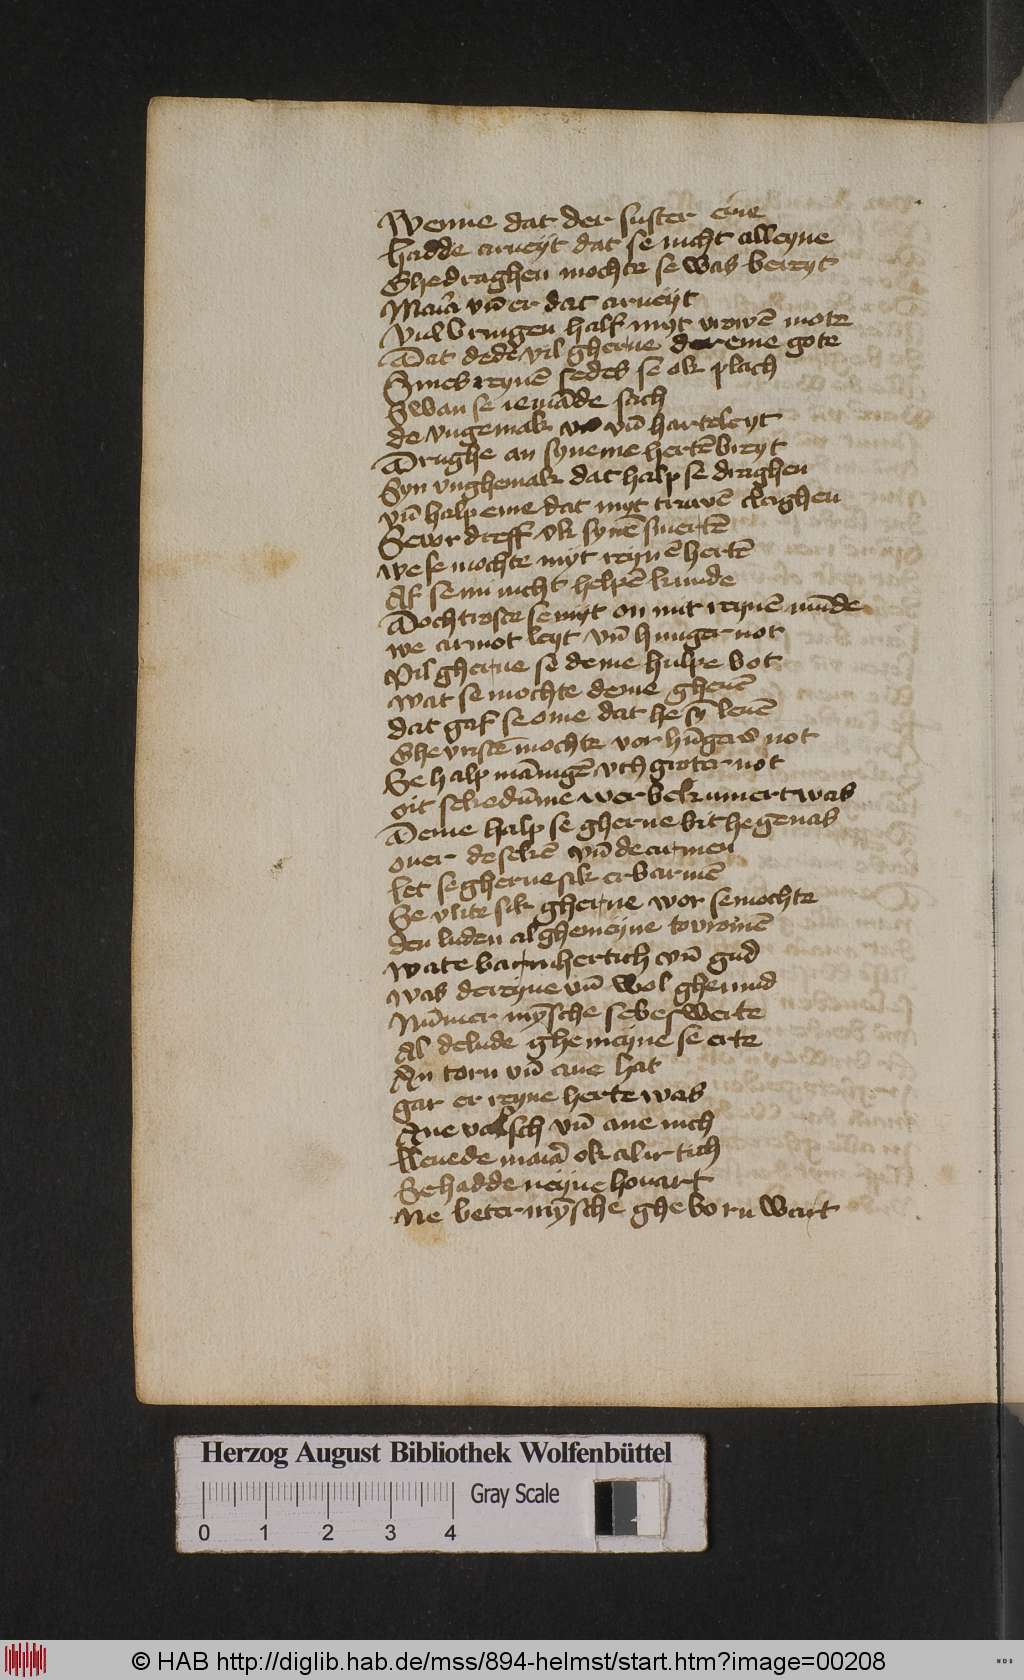 Wenne dat der suster eine
hadde arueyt dat se nicht alleyne
Ghedraghen mochte se was bereyt
Maria vn̄ er dat arueyt
Vulbringen half myt vrowē mote
Dat dede vil gherne dor eme gote
Sines reynē sedes se ok plach
Swan se iemāde sach
de vngemak vn̄ harteleyt
Drughe an syneme hertē breyt
Syn vnghemak dat halp se draghen
vn̄ halp eme dat myt truwē claghen
Se wor dreff ok synē smertē
we se mochte myt reynē hertē
Af se im nicht helpē kunde
Doch troste se myt on mit reynē mūde
we armot leyt vn̄ hunger not
Vil gherne se deme hulpe bot
wat se mochte deme gheuē
dat gaf se ome dat he sȳ leuē
Ghevristē mochte vor hūgers not
Se halp mānigē vth groter not
oit sekedūme wer bekumert was
Deme halp se gherne bit he genas
ouer de sekē vn̄ de armen
let se gherne sik erbarmē
Se vlite sik gherne wor se mochte
den luden al ghemeyne to vromē
wate barmhertich vn̄ gud
was de reyne vn̄ wol ghemud
Nūmer mȳsche se beswerte
Al de lude ghemeyne se erte
An torn vn̄ ane hat
gar er reyne herte was
Ane valsch vn̄ ane nich
leuede maria ok alir tich
Se hadde neyne houart
Ne beter mȳsche ghe born wart
Herzog August Bibliothek Wolfenbüttel
Gray Scale
0 1 2 3 4
© HAB http://diglib.hab.de/mss/894-helmst/start.htm?image=00208